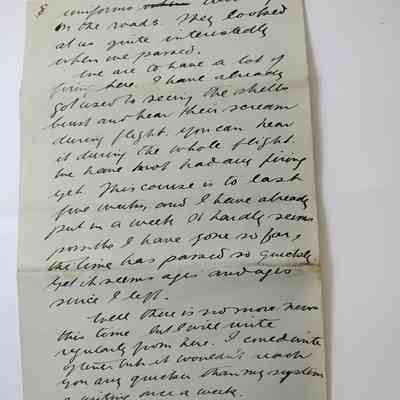 uniforms
on the roads. They looked
at us quite interestedly
when we passed.
We are to have a lot of
firing here. I have already
got used to seeing the shells
burst and hear their scream
during flight. You can hear
it during the whole flight.
We have not had any firing
yet. This course is to last
five weeks, and I have already
put in a week. It hardly seems
possible I have gone so far,
the time has passed so quickly.
Yet it seems ages and ages
since I left.
Well there is no more news
this time but I will write
regularly from here. I could write
oftener but it wouldn't reach
you any quicker than my system
of writing once a week.